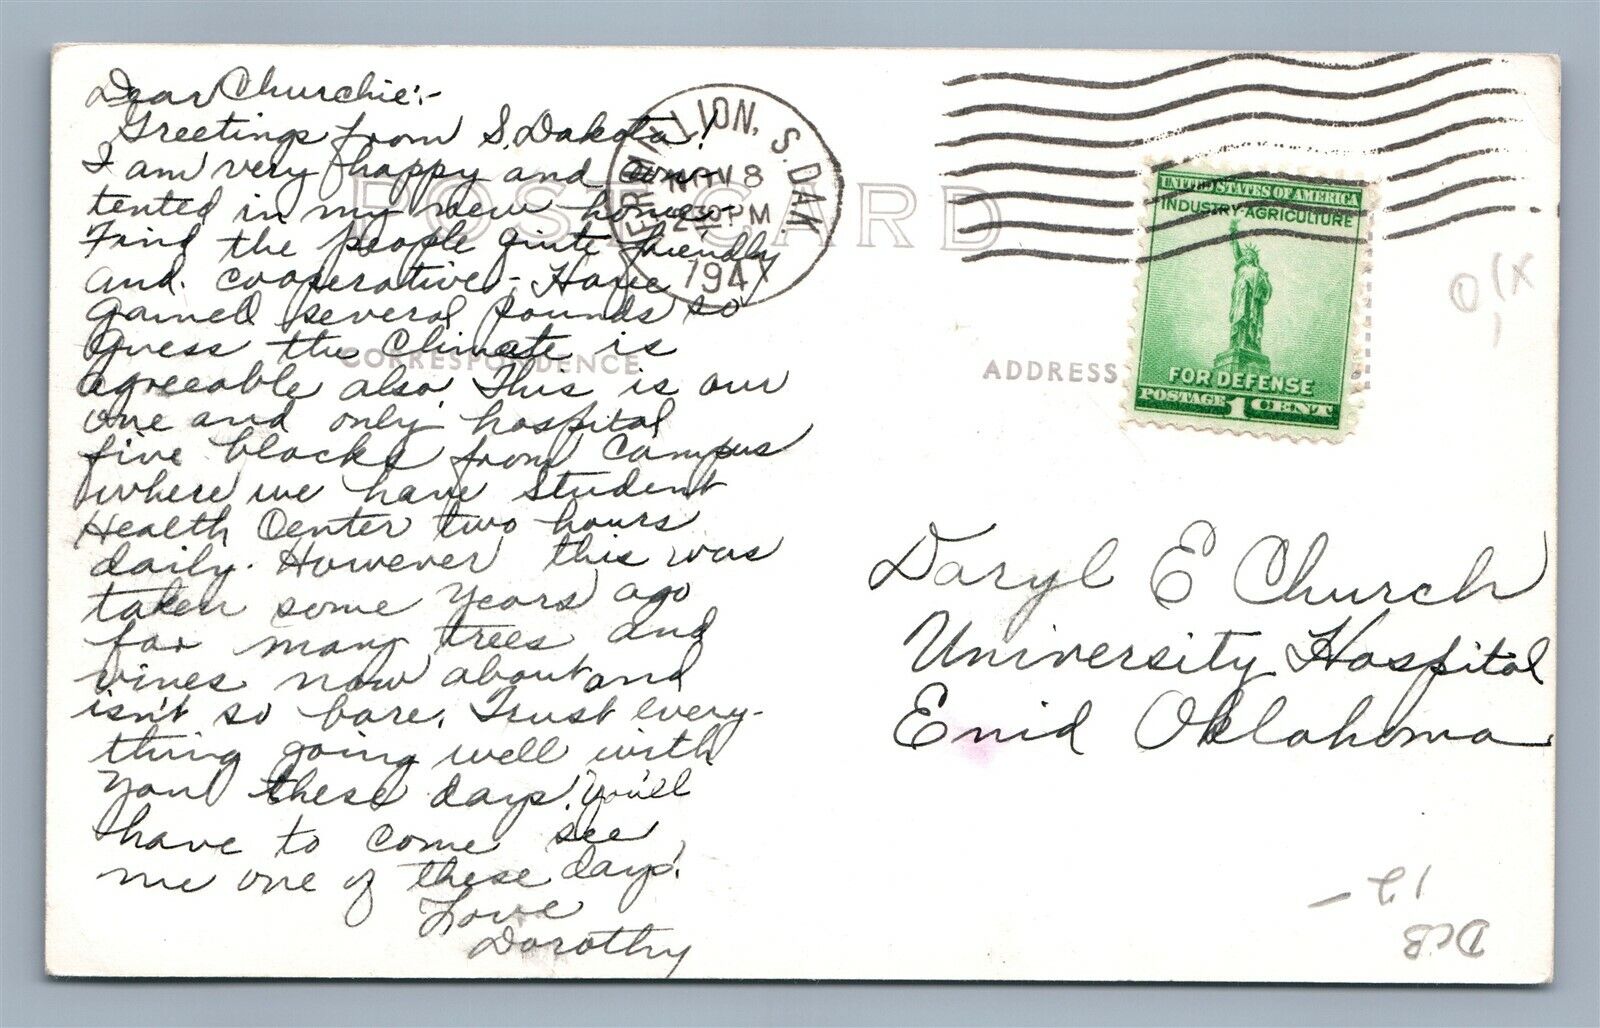 Dear Churchie:-
Greetings from S. Dakota!
I am very happy and con-
tented in my new home.-
Find the people quite friendly
and cooperative - Have
gained several pounds so
guess the climate is
agreeable also. This is our
one and only hospital
five blocks from campus
where we have Student
Health Center two hours
daily. However this was
taken some years ago
for many trees and
vines now about and
isn't so bare. Trust every-
thing going well with
you these days! You'll
have to come see
me one of these days!
Love
Dorothy
POST CARD
CORRESPONDENCE
ADDRESS
VERMILLION, S. DAK.
30 PM
194
UNITED STATES OF AMERICA
INDUSTRY-AGRICULTURE
FOR DEFENSE
POSTAGE 1 CENT
Daryl E Church
University Hospital
Enid Oklahoma
12-
DCB